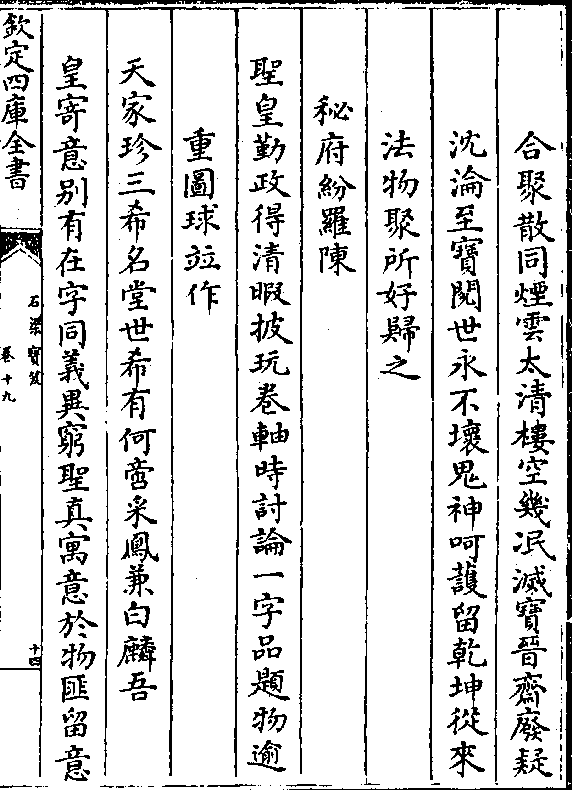 合聚散同煙雲太清樓空幾泯滅寶晉齋廢疑
沈淪至寶閱世永不壞鬼神呵護留乾坤從來
法物聚所好歸之
秘府紛羅陳
聖皇勤政得清暇披玩卷軸時討論一字品題物逾
重圖球竝作
天家珍三希名堂世希有何啻采鳳兼白麟吾
皇寄意别有在字同義異窮聖真寓意於物匪留意
欽定四庫全書
石渠寶笈
卷十九
十四